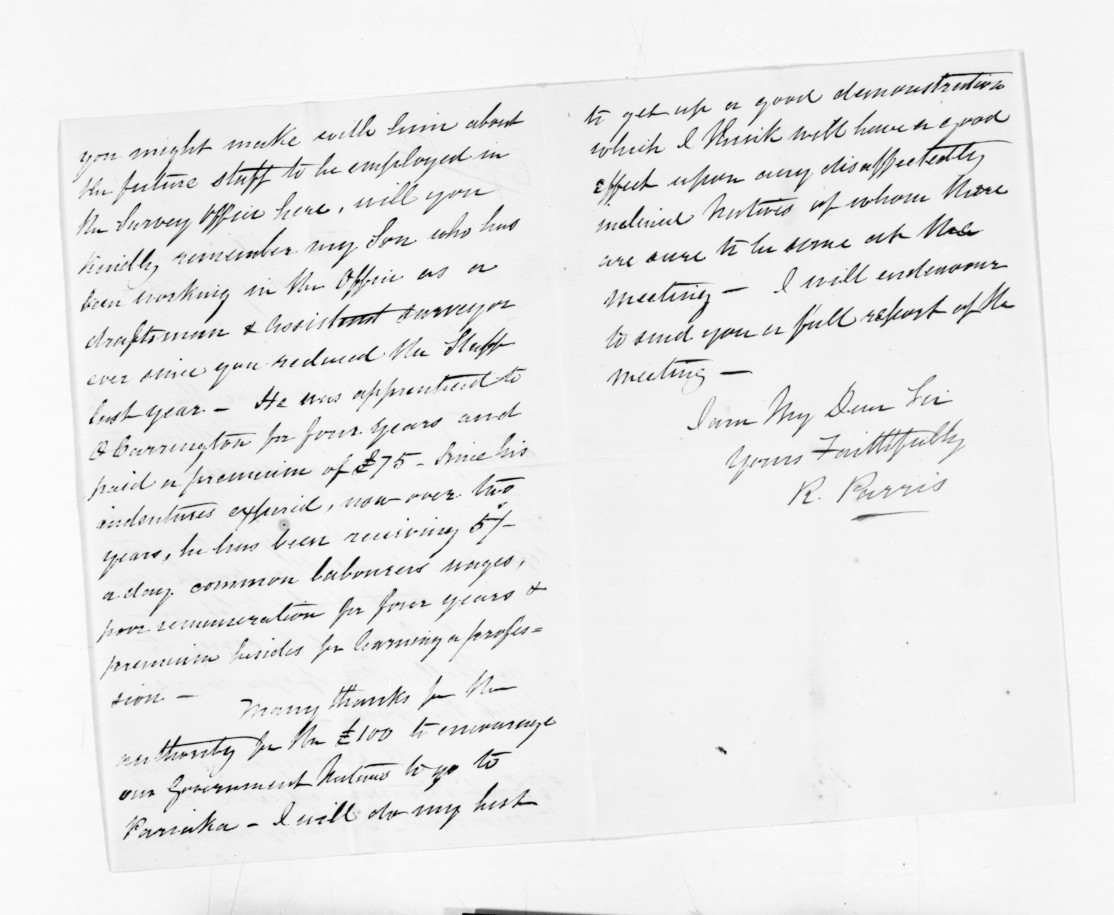 you might make with him about
the future staff to be employed in
the Survey Office here, will you
kindly remember my Son who has
been working in the Office as a
draftsman & assistant surveyor
ever since you reduced the Staff
last year - He was apprenticed to
O Carrington for four years and
paid a premium of £75 - Since his
indentures expired, now over two
years, he has been receiving 5/-
a day common labourers wages,
poor remuneration for four years &
premium besides for learning a profes=
sion -
Many thanks for the
authority for the £100 to encourage
our Government Natives to go to
Parihaka - I will do my best
to get up a good demonstration
which I think will have a good
effect upon any disaffectedly
inclined Natives of whom there
are sure to be some at the
meeting - I will endeavour
to send you a full report of the
meeting -
I am My Dear Sir
Yours Faithfully
R. Parris